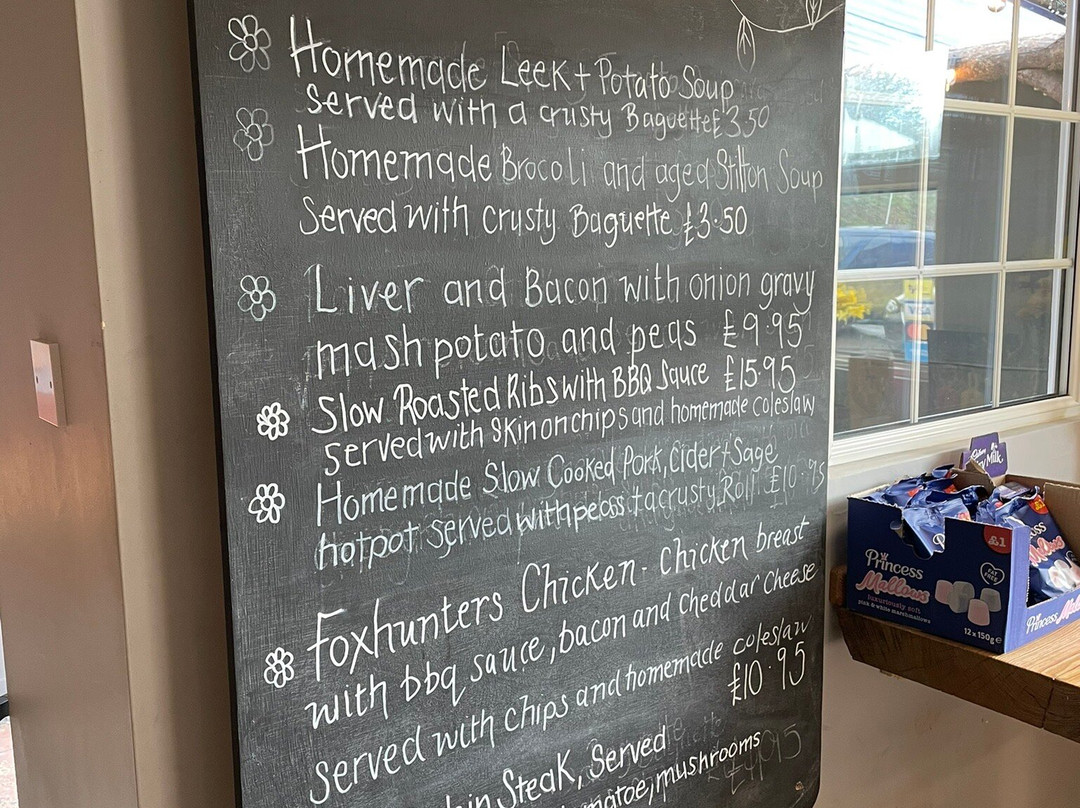 Homemade Leek + Potato Soup
served with a crusty Baguette £3.50
Homemade Brocoli and aged Stilton Soup
Served with crusty Baguette £3.50
Liver and Bacon with onion gravy
mash potato and peas £9.95
Slow Roasted Ribs with BBQ Sauce £15.95
served with skin on chips and homemade coleslaw
Homemade Slow Cooked Pork, Cider + Sage
hotpot served with peas + a crusty Roll £10.95
Foxhunters Chicken - Chicken breast
with bbq sauce, bacon and cheddar cheese
served with chips and homemade coleslaw
£10.95
Steak, Served
mushrooms
Milk
£1
Princess
Mallows
luxuriously soft
pink & white marshmallows
FAT FREE
12 x 150g e
Princess